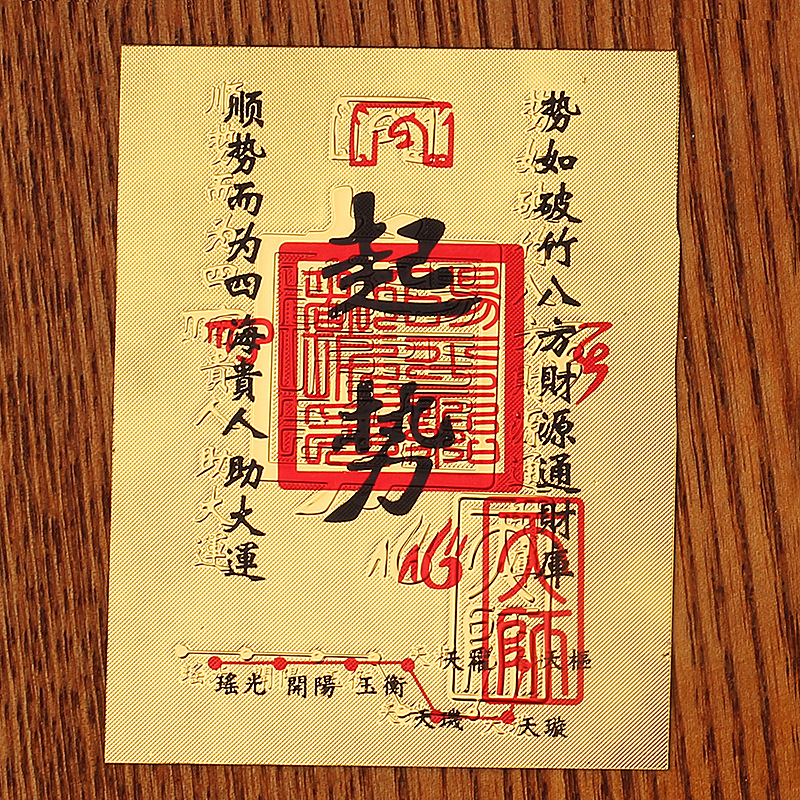 势如破竹八方財源通財庫
起势
顺势而为四海貴人助大運
天師
瑶光 開陽 玉衡 天權 天樞
天璣 天璇